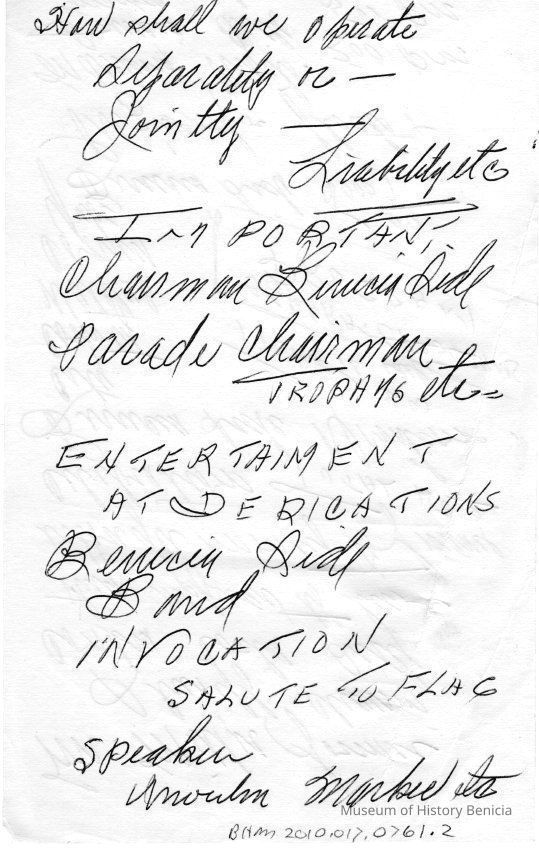 How shall we operate
Seperately or —
Jointly —
Liability etc
IMPORTANT
Chairman Benicia Side
Parade Chairman
TROPHYS etc =
ENTERTAIMENT
AT DEDICATIONS
Benicia Side
Band
INVOCATION
SALUTE TO FLAG
Speaker
etc
Museum of History Benicia
BHM 2010.017.0761.2